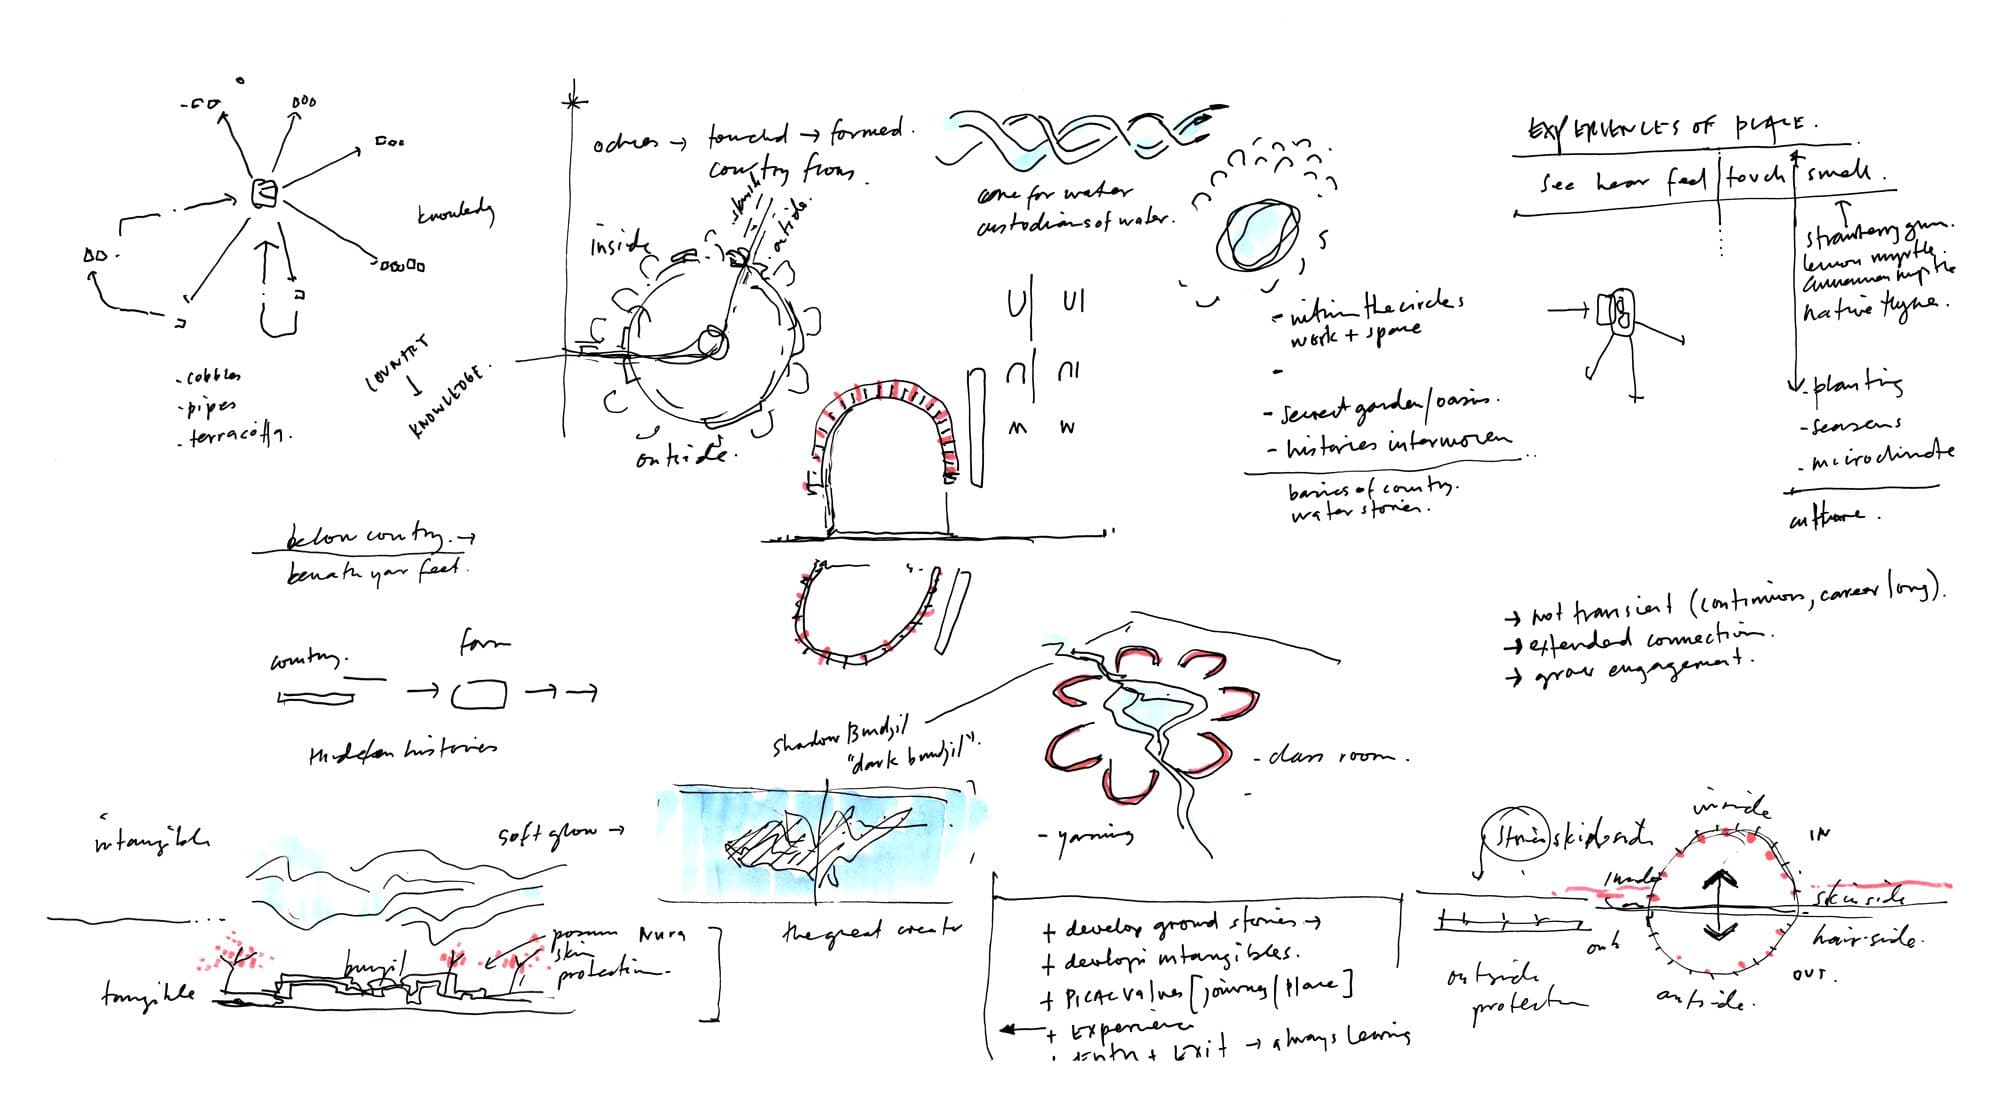 knowledge
- cobbles
- pipes
- terracotta.
COUNTRY
KNOWLEDGE.
ochres → touched → formed.
country from
inside
outside.
outside.
care for water
custodians of water.
U| U|
∩| ∩|
M W
- within the circles
work + space
-
- secret garden/oasis.
- histories interwoven
basics of country.
water stories.
EXPERIENCES OF PLACE.
see hear feel | touch | smell.
strawberry gum.
lemon myrtle
cinnamon myrtle
native thyme.
- planting
- seasons
- microclimate
culture.
below country. →
beneath your feet.
country.
form
hidden histories
→ not transient (continuous, career long).
→ extended connection.
→ grow engagement.
shadow Bundjil
"dark bundjil".
- class room.
-
- yarning
intangible
soft glow →
the great creator
possum
skin
protection.
Nura
bunjil
tangible
+ develop ground stories →
+ develop intangibles.
+ PICAC values [journey/place]
+ Experience
+ Entry + Exit → always learning
stories
inside
IN
skinside
hair-side.
OUT.
outside.
out
outside
protection